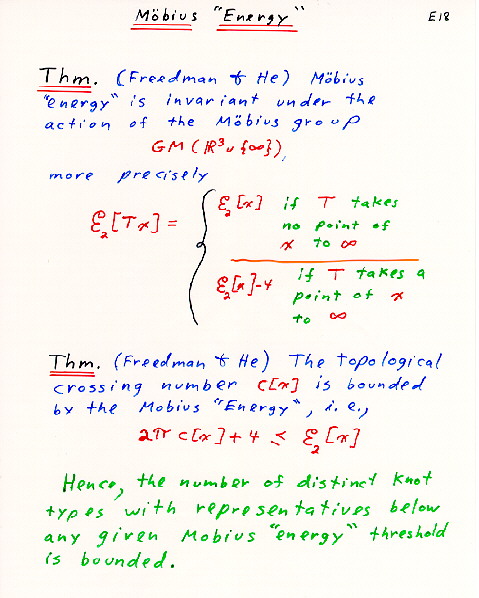 Möbius "Energy"
E18
Thm. (Freedman & He) Möbius
"energy" is invariant under the
action of the Möbius group
GM(ℝ³∪{∞}),
more precisely
ℰ₂[Tx] = { ℰ₂[x] if T takes
no point of
x to ∞
ℰ₂[x]-4 if T takes a
point of x
to ∞
Thm. (Freedman & He) The topological
crossing number c[x] is bounded
by the Mobius "Energy", i.e.,
2π c[x] + 4 ≤ ℰ₂[x]
Hence, the number of distinct knot
types with representatives below
any given Mobius "energy" threshold
is bounded.